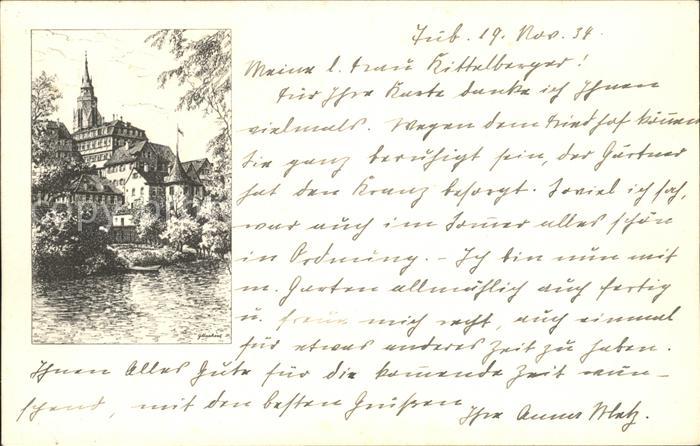 Tüb. 19. Nov. 34.
Meine l. Frau Kittelberger!
Für Ihre Karte danke ich Ihnen
vielmals. Wegen dem Friedhof können
Sie ganz beruhigt sein, der Gärtner
hat den Kranz besorgt. Soviel ich sah,
war auch im Som̄er alles schön
in Ordnung. – Ich bin nun mit
m. Garten allmählich auch fertig
u. freue mich recht, auch einmal
für etwas anderes Zeit zu haben.
Ihnen Alles Gute für die kom̄ende Zeit wün-
schend, mit den besten Grüßen
Ihre Anna Metz.